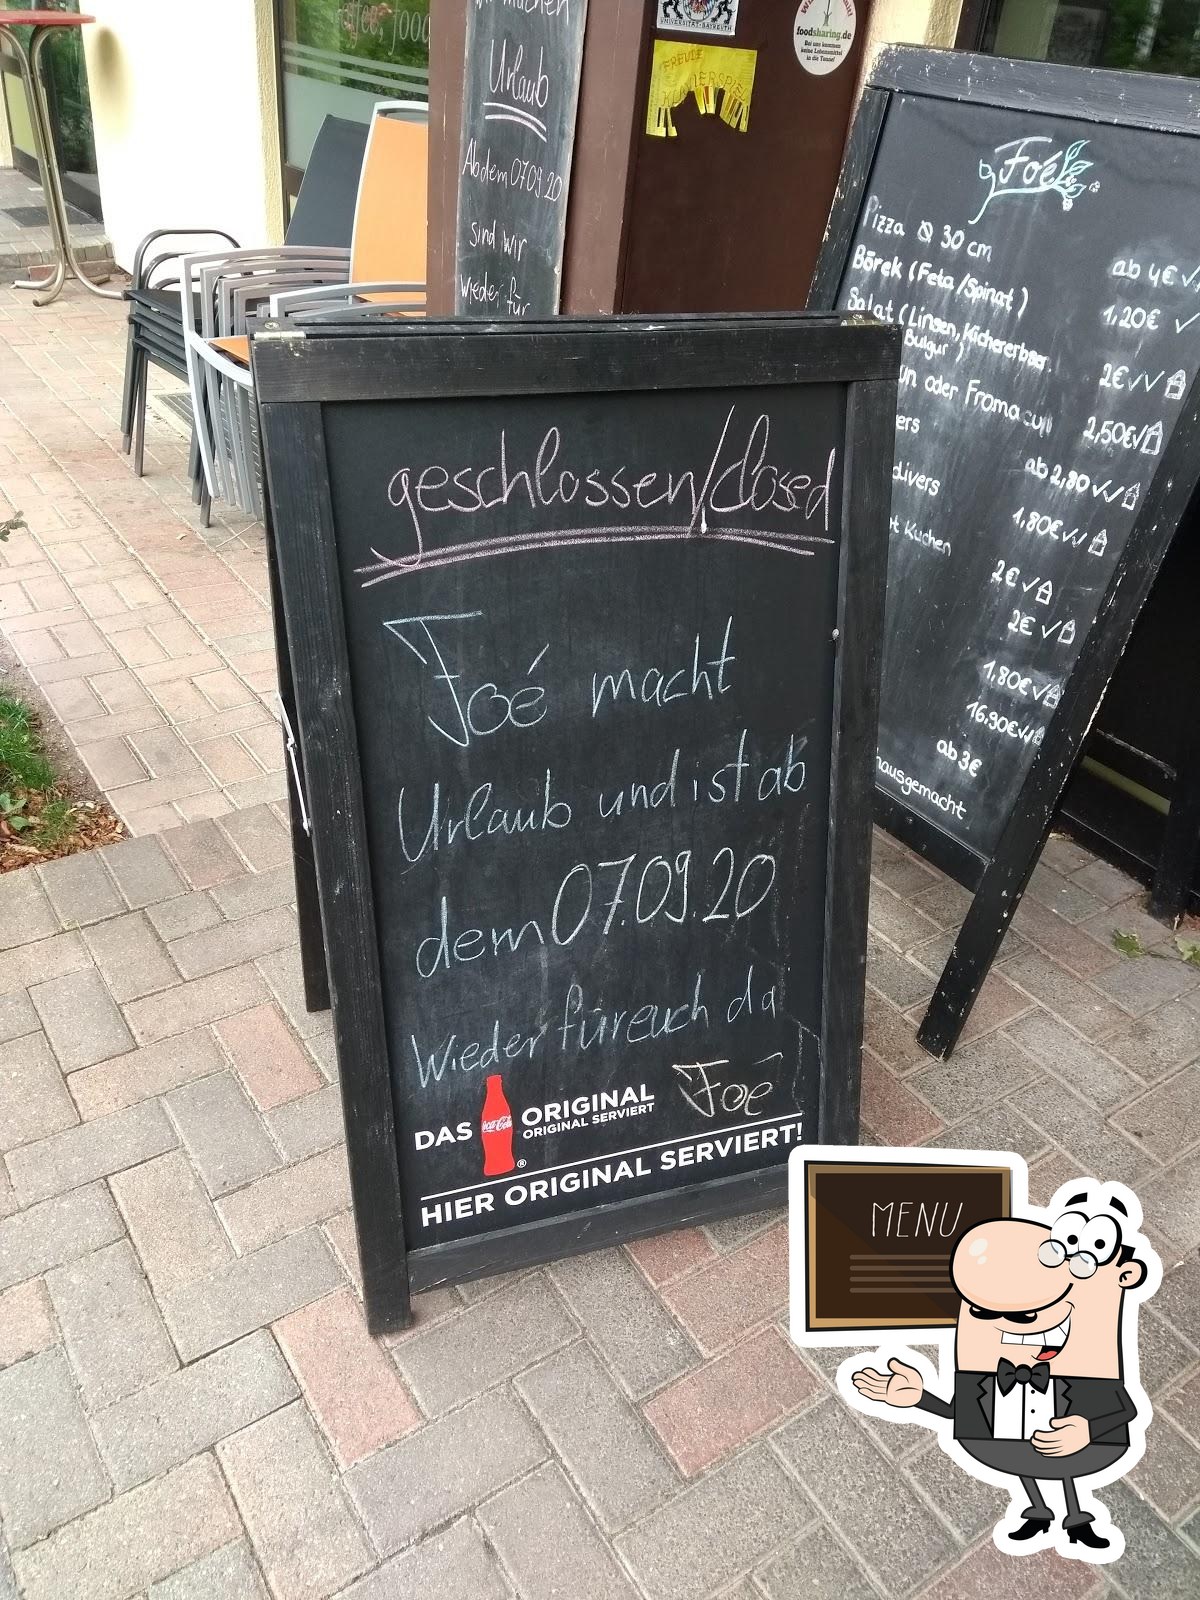 geschlossen/closed
Foé macht
Urlaub und ist ab
dem 07.09.20
Wieder für euch da
Foé
DAS Coca-Cola ® ORIGINAL
ORIGINAL SERVIERT
HIER ORIGINAL SERVIERT!
wir machen
Urlaub
Ab dem 07.09.20
sind wir
wieder für
coffee, food
UNIVERSITÄT BAYREUTH
FREUDE
foodsharing.de
Bei uns kommen
keine Lebensmittel
in die Tonne!
Foé
Pizza Ø 30 cm ab 4€ ✓
Börek (Feta/Spinat) 1,20€ ✓
Salat (Linsen, Kichererbsen,
Bulgur) 2€ ✓✓
oder 2,50€ ✓
ab 2,80 ✓✓
divers 1,80€ ✓✓
Kuchen 2€ ✓
2€ ✓
1,80€ ✓
16,90€ ✓✓
ab 3€
hausgemacht
MENU